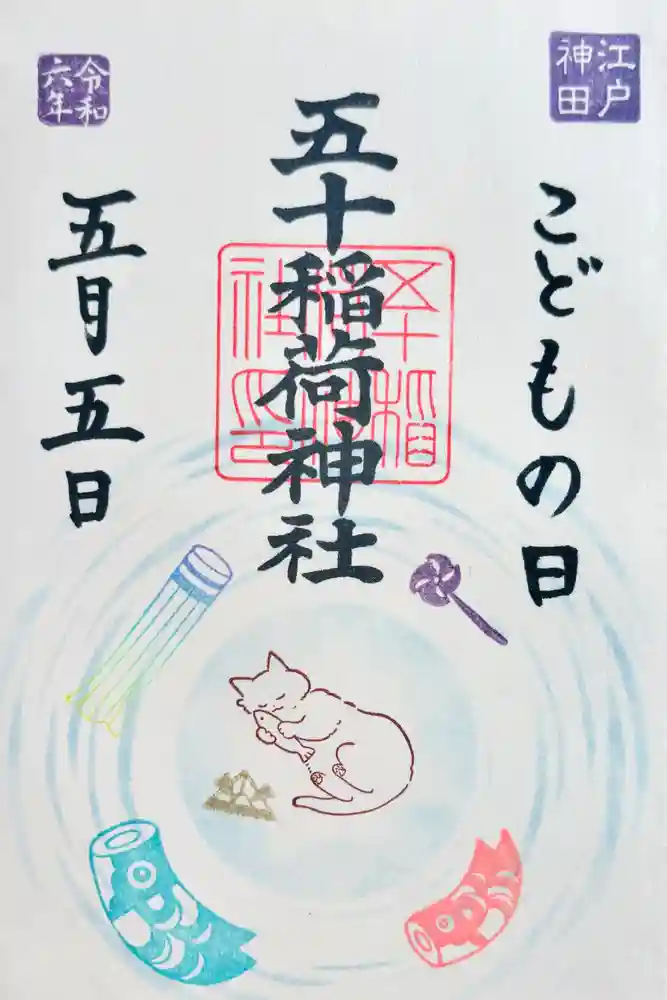 江戸
神田
こどもの日
五十稲荷神社
五十稲
荷神
社之印
令和
六年
五月五日